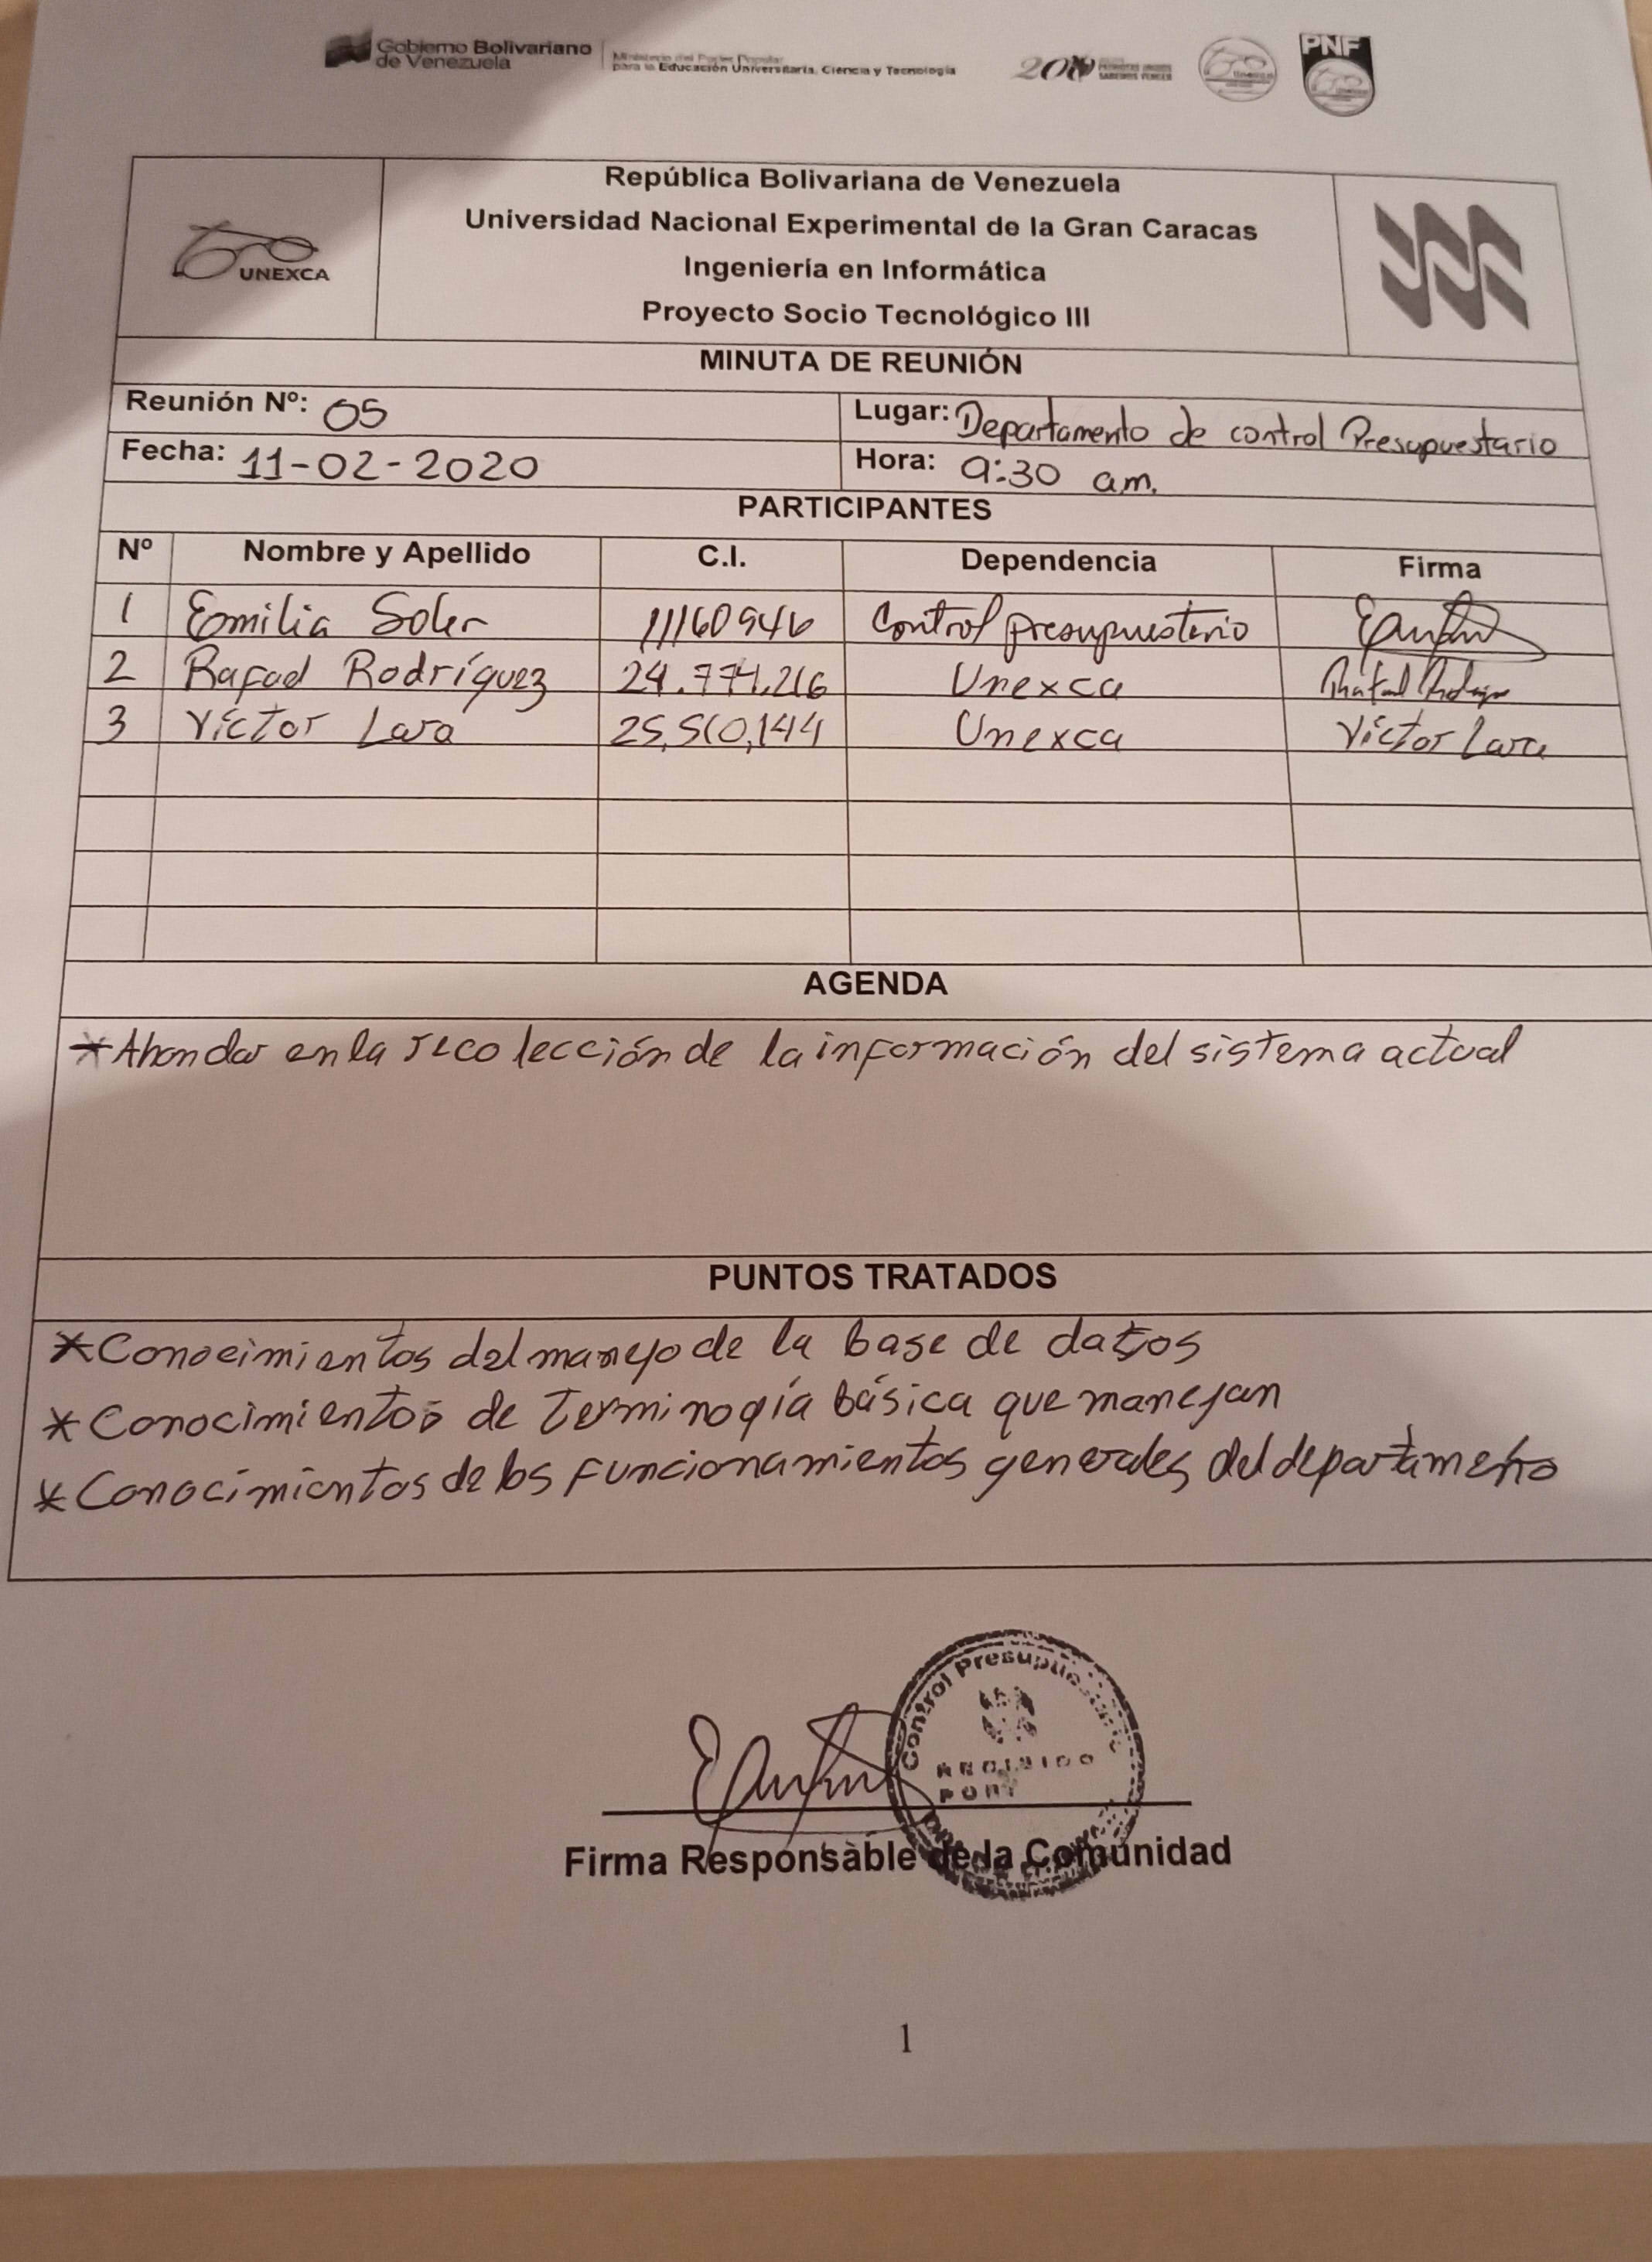 Gobierno Bolivariano
de Venezuela
Ministerio del Poder Popular
para la Educación Universitaria, Ciencia y Tecnología
PNF
UNEXCA
República Bolivariana de Venezuela
Universidad Nacional Experimental de la Gran Caracas
Ingeniería en Informática
Proyecto Socio Tecnológico III
MINUTA DE REUNIÓN
Reunión Nº: 05
Lugar: Departamento de control Presupuestario
Fecha: 11-02-2020
Hora: 9:30 am.
PARTICIPANTES
Nº Nombre y Apellido C.I. Dependencia Firma
1 Emilia Soler 11160946 Control presupuestario
2 Rafael Rodríguez 24.774.216 Unexca
3 Víctor Lara 25,510,144 Unexca Víctor Lara
AGENDA
*Ahondar en la recolección de la información del sistema actual
PUNTOS TRATADOS
*Conocimientos del manejo de la base de datos
*Conocimientos de Terminogía básica que manejan
*Conocimientos de los Funcionamientos generales del departamento
Control Presupuestario
RECIBIDO
POR:
Firma Responsable de la Comunidad
1